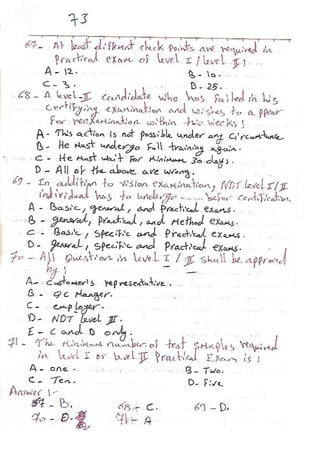 73
67- At least different check points are required in
practical exam of level I / level II :
A - 12. B - 10.
C - 3. D - 25.
68 - A level-II candidate who has failed in his
certifying examination and wishes to appear
for reexamination within two weeks :
A - This action is not possible under any circumtance
B - He Must undergo Full training again.
C - He Must wait For Minimum 30 days.
D - All of the above are wrong.
69 - In addition to vision examination, NDT level I/II
individual has to undergo ...... befor certification.
A - Basic, general, and Practical exams.
B - general, Practical, and Method exams.
C - Basic, Specific and Practical exams.
D - general, specific and Practical exams.
70 - All question in level I / II shall be approved
by :
A - Customer's representative.
B - QC Manger.
C - employer.
D - NDT level III.
E - C and D only.
71 - The Minimum number of test smaples required
in level I or level II Practical Exam is :
A - one. B - Two.
C - Ten. D - Five
Answer :-
67 - B. 68 - C. 69 - D.
70 - D. 71 - A